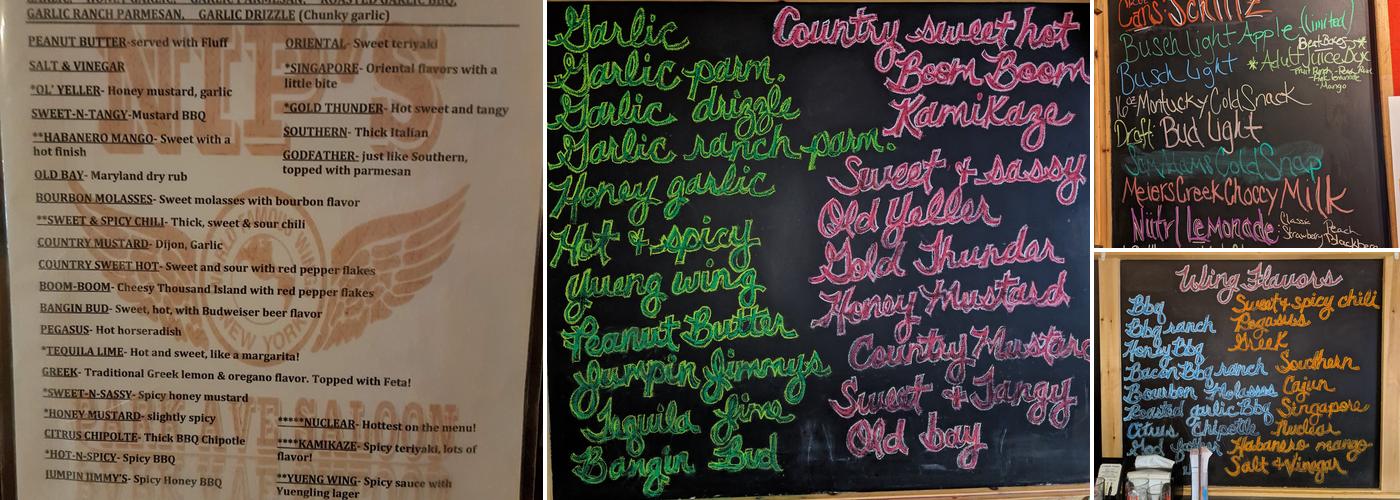 GARLIC RANCH PARMESAN, GARLIC DRIZZLE (Chunky garlic)
PEANUT BUTTER-served with Fluff
SALT & VINEGAR
*OL' YELLER- Honey mustard, garlic
SWEET-N-TANGY-Mustard BBQ
**HABANERO MANGO- Sweet with a
hot finish
OLD BAY- Maryland dry rub
ORIENTAL- Sweet teriyaki
*SINGAPORE- Oriental flavors with a
little bite
*GOLD THUNDER- Hot sweet and tangy
SOUTHERN- Thick Italian
GODFATHER- just like Southern,
topped with parmesan
BOURBON MOLASSES- Sweet molasses with bourbon flavor
**SWEET & SPICY CHILI- Thick, sweet & sour chili
COUNTRY MUSTARD- Dijon, Garlic
COUNTRY SWEET HOT- Sweet and sour with red pepper flakes
BOOM-BOOM- Cheesy Thousand Island with red pepper flakes
BANGIN BUD- Sweet, hot, with Budweiser beer flavor
PEGASUS- Hot horseradish
*TEQUILA LIME- Hot and sweet, like a margarita!
GREEK- Traditional Greek lemon & oregano flavor. Topped with Feta!
*SWEET-N-SASSY- Spicy honey mustard
*HONEY MUSTARD- slightly spicy
CITRUS CHIPOLTE- Thick BBQ Chipotle
*HOT-N-SPICY- Spicy BBQ
JUMPIN JIMMY'S- Spicy Honey BBQ
*****NUCLEAR- Hottest on the menu!
****KAMIKAZE- Spicy teriyaki, lots of
flavor!
**YUENG WING- Spicy sauce with
Yuengling lager
NEW YORK
SALOON
Garlic
Garlic parm.
Garlic drizzle
Garlic ranch parm.
Honey garlic
Hot & spicy
Yuang wing
Peanut Butter
Jumpin Jimmys
Tequila lime
Bangin Bud
Country sweet hot
Boom Boom
Kamikaze
Sweet & sassy
Old Yeller
Gold Thundar
Honey Mustard
Country Mustard
Sweet & Tangy
Old bay
Cans: Schlitz
Busch Light Apple (limited)
Busch Light
BeatBoxes
*Adult Juice Box
Mango
16oz Montucky Cold Snack
Draft: Bud Light
Sam Adams Cold Snap
Meiers Creek Choccy Milk
Nütrl Lemonade:
Classic Peach
Strawberry Blackberry
Wing Flavors
Bbq
Bbq ranch
Honey Bbq
Bacon Bbq ranch
Bourbon Molasses
Roasted garlic Bbq
Citrus Chipotle
God father
Sweet & spicy chili
Pegasus
Greek
Southern
Cajun
Singapore
Nuclear
Habanero mango
Salt & Vinegar